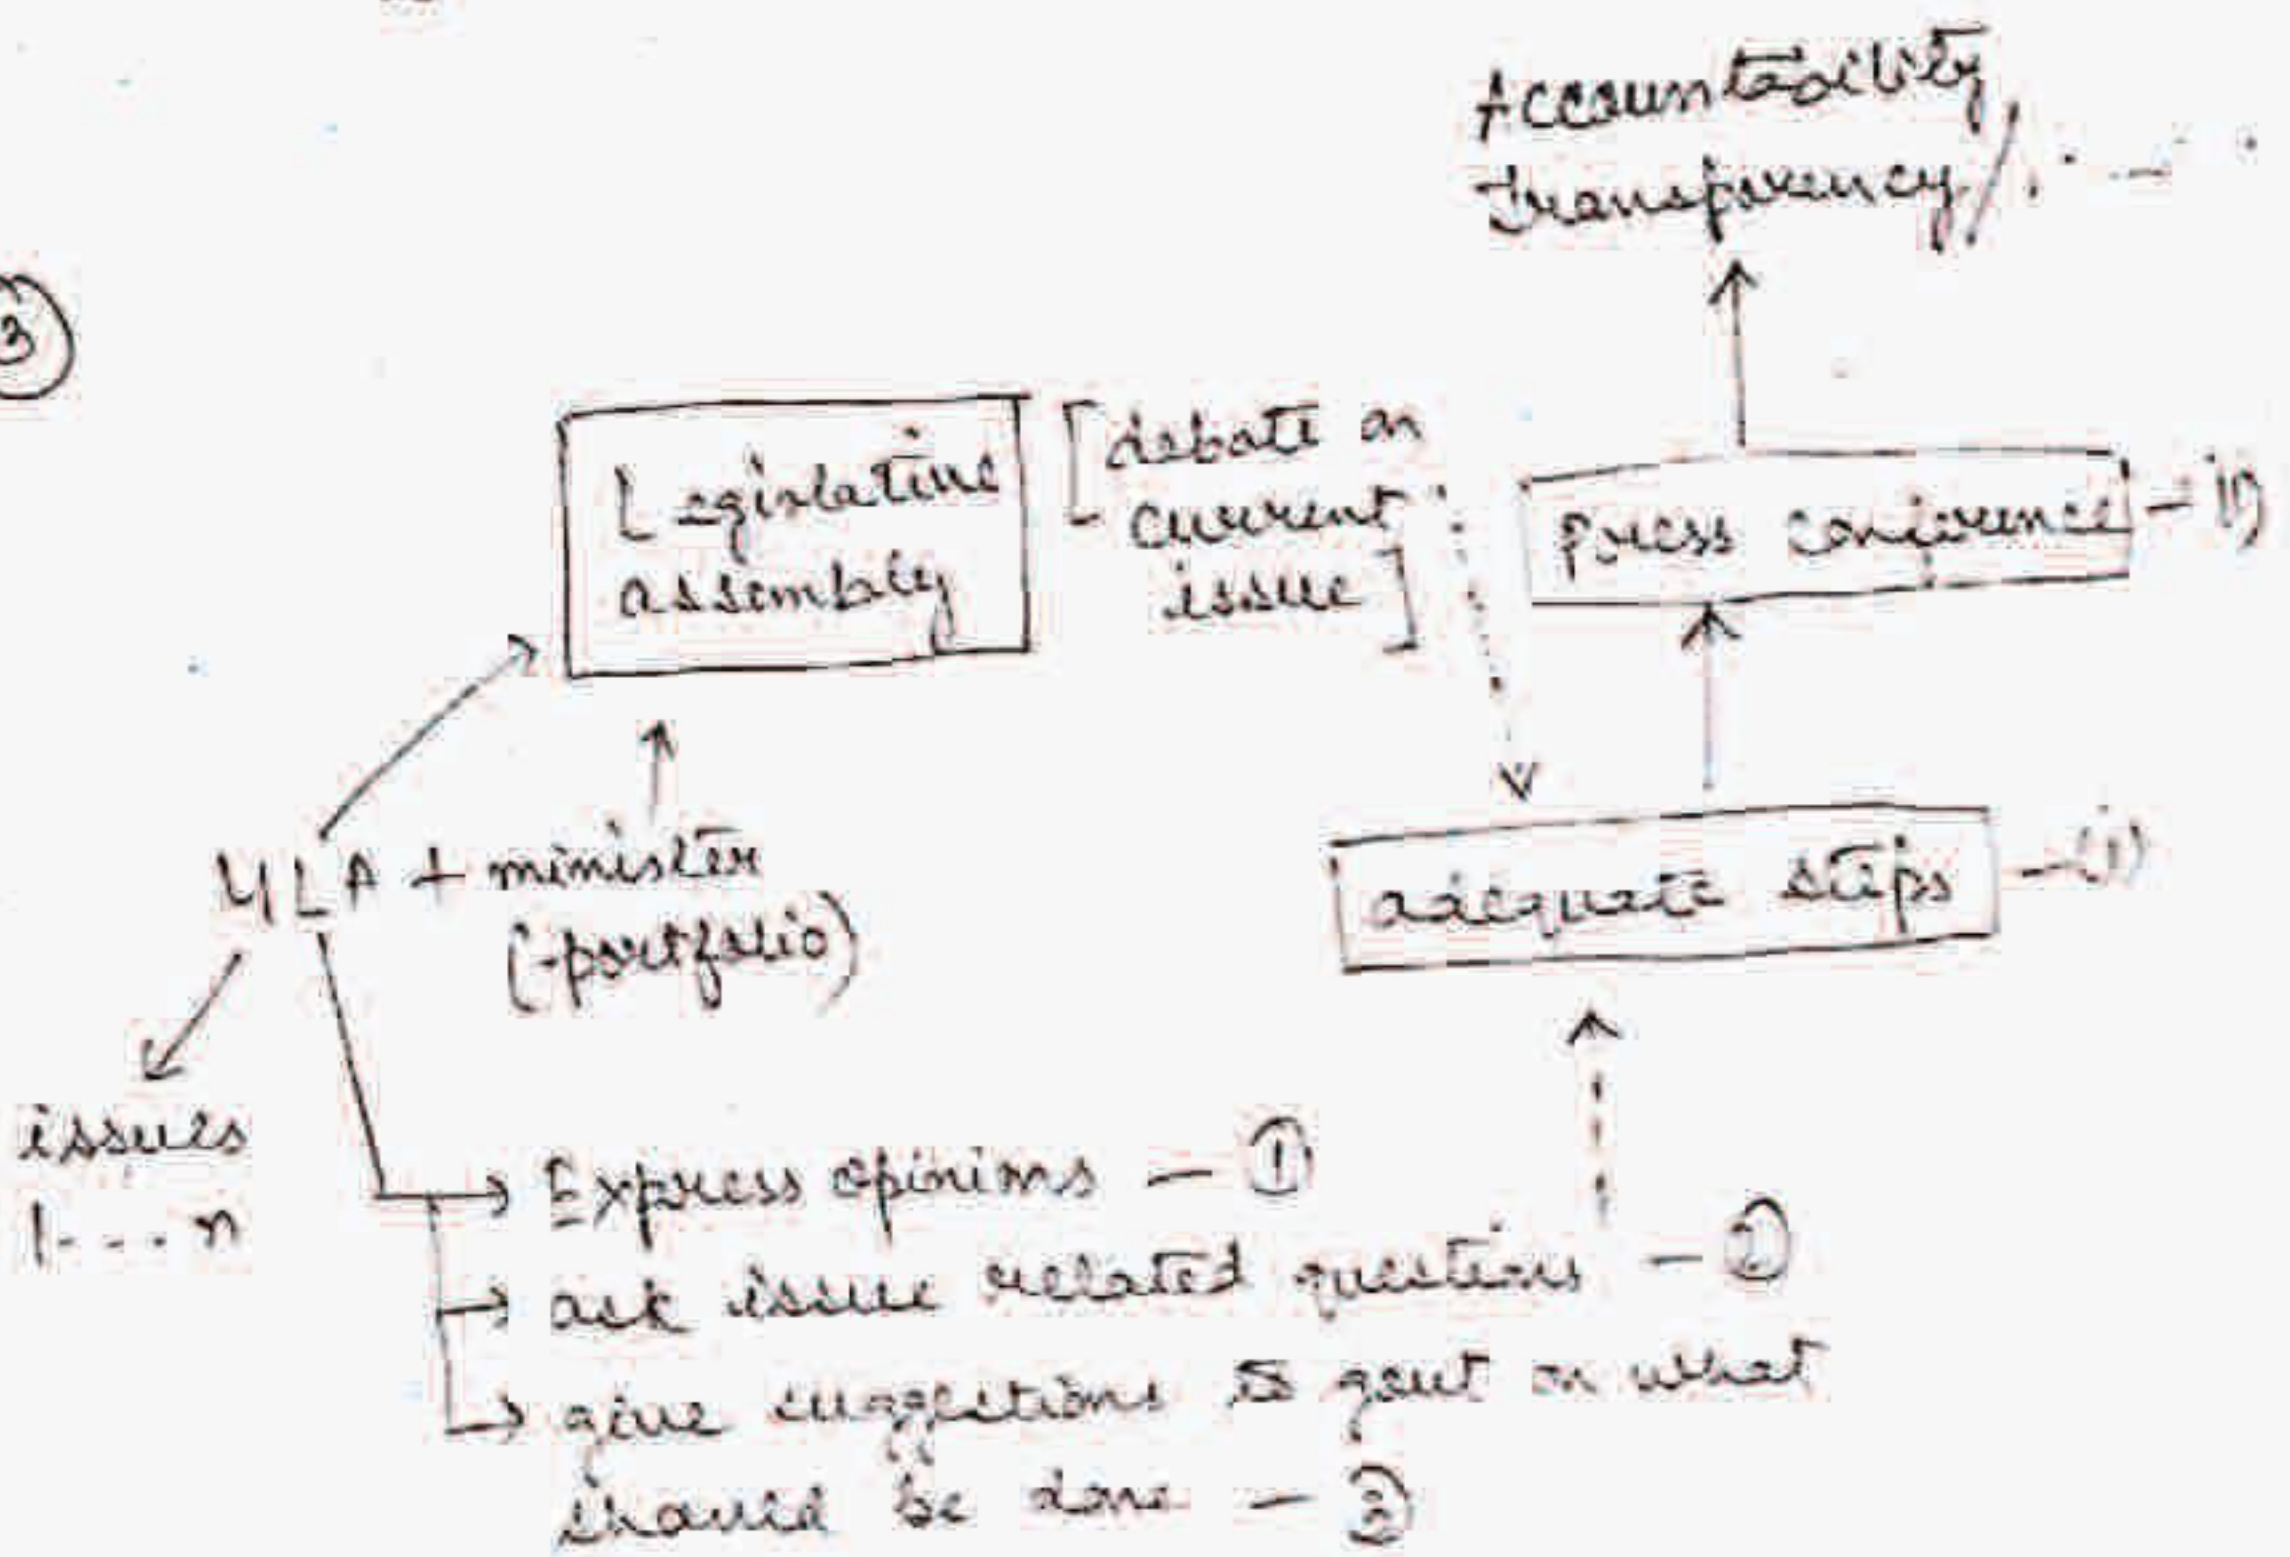 Accountability
Transparency/. . - .
③
Legislative
assembly
[debate on
current
issue]
Press conference - ii)
MLA + minister
(-portfolio)
adequate steps - (i)
issues
1...n
→ Express opinions — ①
→ ask issue related questions — ②
→ give suggestions to govt on what
should be done — ③